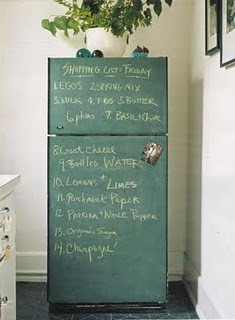 SHOPPING LIST: FRIDAY
1. EGGS 2. SPRING MIX
3. MILK 4. FIGS 5. BUTTER
6 plums 7. BASIL + Chive
8. Goat Cheese
9. Bottled WATER
10. LEMONS + LIMES
11. Parchment Paper
12 PAPRIKA + White Pepper
13. Organic Sugar
14. Champagne!